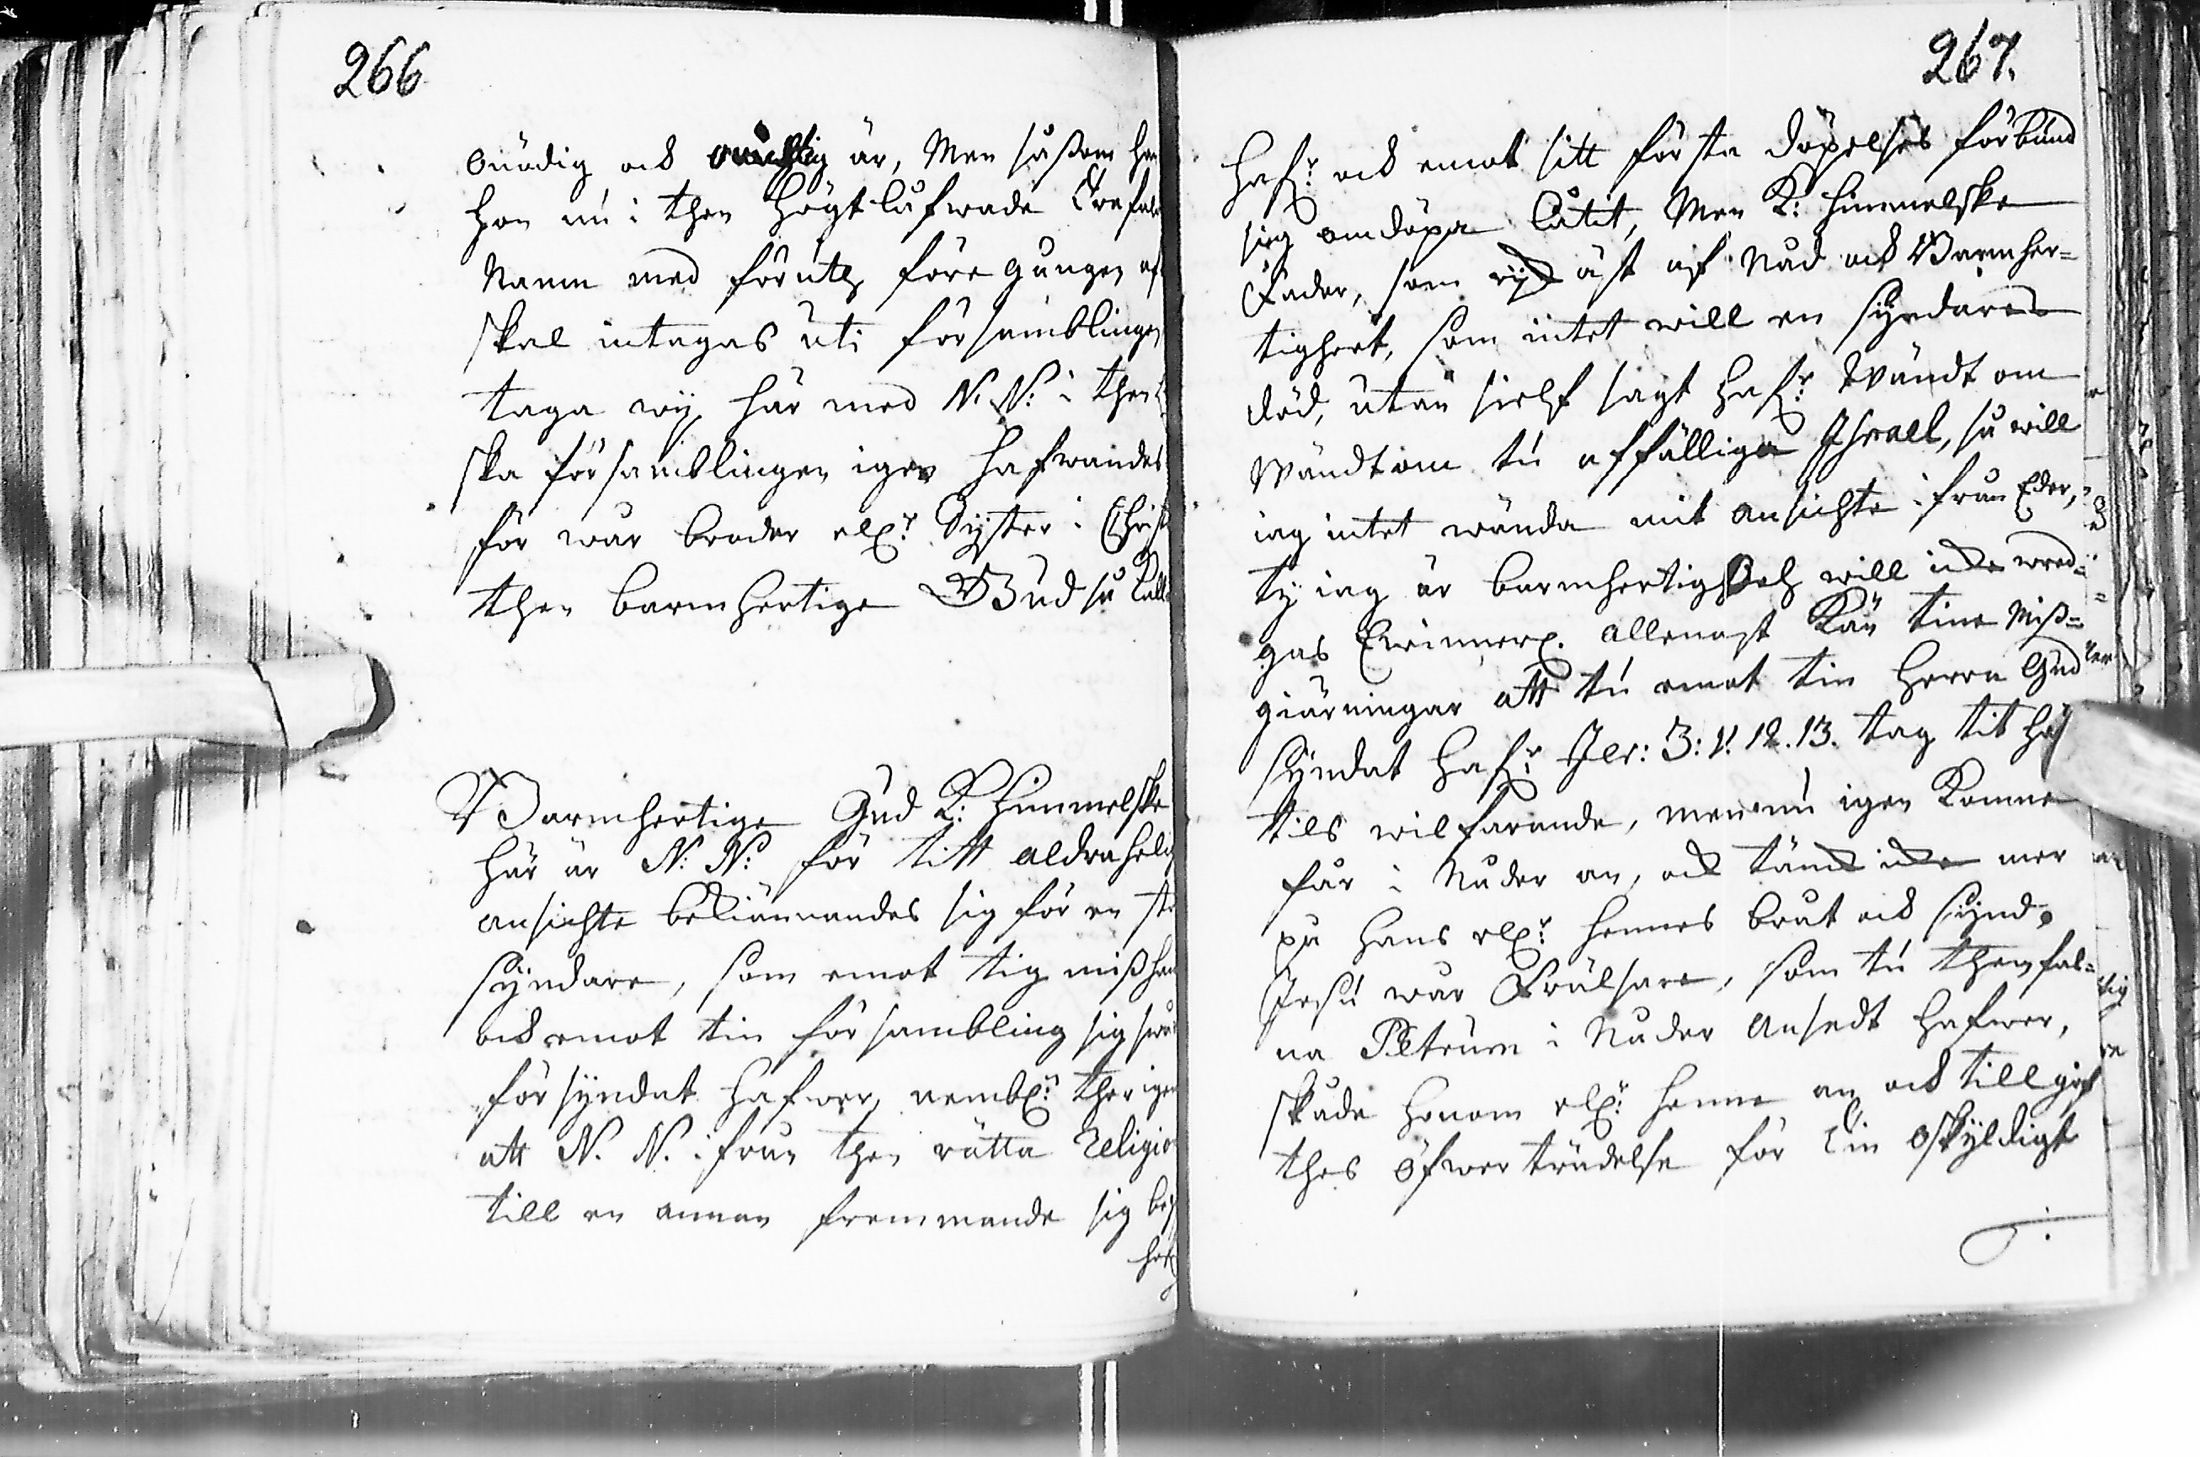 266
onödig och är, Men såsom han
hon nu i then Högtlåfwade Trefald
Namn med förutg. före gången af
skal intagas uti församblingen
taga wij här med N. N: i then
ska församblingen igen hafwandes
för wår broder elr. Syster i Christ
then barmhertige Gud så kall
Barmhertige Gud K: Himmelske
här är N: N: för titt aldrahelg
ansichte bekiännandes sig för en st
syndare, som emot tig mißhan
och emot tin försambling sig swå
försyndat hafwer, nembl. ther igen
att N. N. ifrån then rätta Religio
till en annan fremmande sig beg
haf
267.
Hafr. och emot sitt första döpelses förbund
sig omdöpa låtit, Men K: Himmelske
Fader, som rijk äst af Nåd och Barmher-
tighet, som intet will en syndares
död, utan sielf sagt hafr. Wändt om
Wändt om tu affälliga Israel, så will
iag intet wända mit ansichte ifrån Eder,
ty iag är barmhertig och will icke wred-
gas Ewinnerl. allenast kän tine Miß-
giärningar att tu emot tin Herra Gud
syndat hafr. Jer: 3: v. 12. 13. tag tit här
tils wilfarande, men nu igen komne
får i Nåder an, och tänck icke mer
på hans elr. hennes brut och synd,
Jesu wår Frälsare, som tu then fal-
na Petrum i Nåder ansedt hafwer,
skåda honom elr. henne an och tillgif
thes öfwerträdelse för tin oskyldige